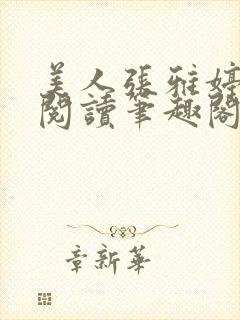 美人張雅婷
閱讀筆趣閣
章新華